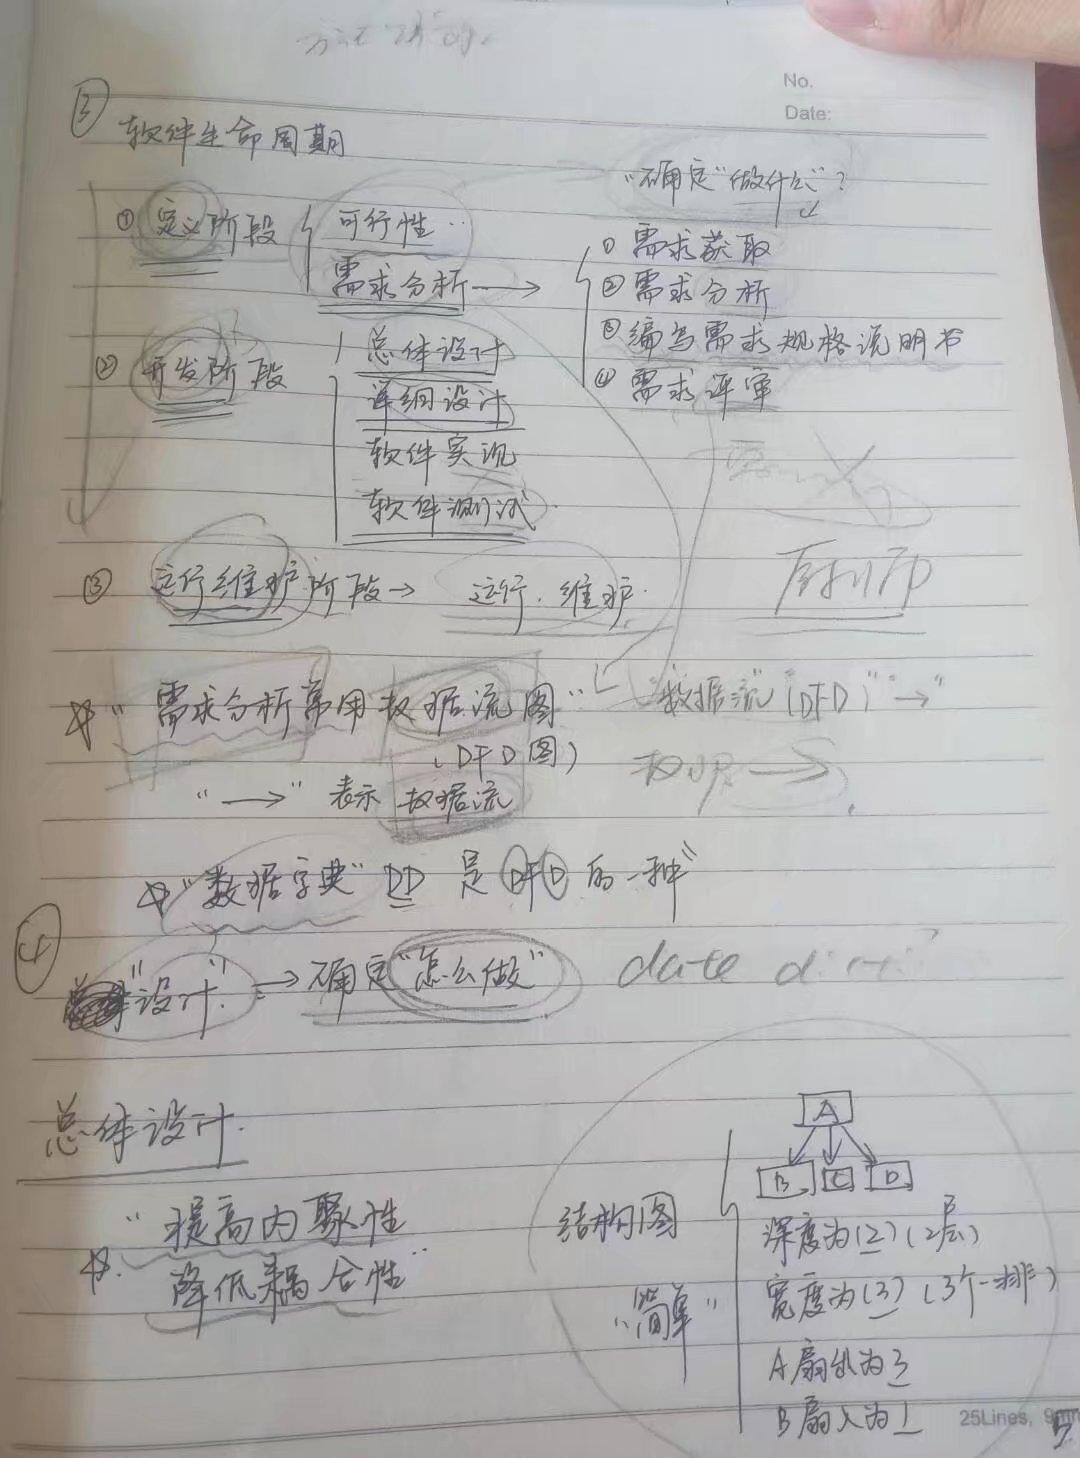 No.
Date:
③ 软件生命周期
"确定"做什么"?
① 定义阶段 { 可行性
需求分析 →
① 需求获取
② 需求分析
③ 编写需求规格说明书
④ 需求评审
② 开发阶段
总体设计
详细设计
软件实现
软件测试
③ 运行维护阶段 → 运行、维护.
厨师
☆ "需求分析常用数据流图"
(DFD图)
"数据流"(DFD)"→"
"→" 表示 数据流
☆ "数据字典" DD 是 DFD 的一种"
④
"设计" → 确定"怎么做"
date
总体设计.
☆. "提高内聚性
降低耦合性"
结构图
"简单"
A
B C D
深度为(2)(2层)
宽度为(3)(3个一排)
A扇出为3
B扇入为1
25Lines,